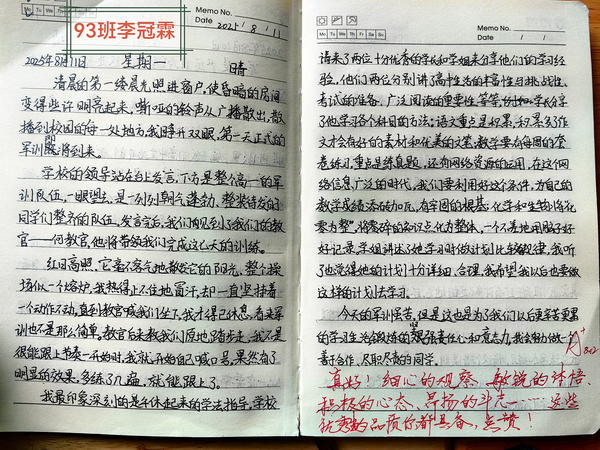 Memo No.
Mo Tu We Th Fr Sa Su
Date 2025 / 8 / 11
93班李冠霖
2025年8月11日 星期一 晴
清晨的第一缕晨光照进窗户,使昏暗的房间
变得些许明亮起来,嘶哑的铃声从广播散出,散
播到校园的每一处地方,我睁开双眼,第一天正式的
军训即将到来。
学校的领导站在台上发言,下方是整个高一的军
训队伍,一眼望去,是一列列朝气蓬勃、整装待发的
同学们整齐的队伍,发言完后,我们见到了我们的教
官——何教官,他将带领我们完成这七天的训练。
红日高照,它毫不客气地散发它的阳光,整个操
场似一个熔炉,我热得止不住地冒汗,却一直坚持着
一个动作不动,直到教官喊我们坐下,我才得已休息,看来军
训也不是那么简单,教官后来教我们原地踏步走,我不是
很能跟上节奏,一开始时,我就开始自己喊口号,果然有了
明显的效果,多练了几遍,就能跟上了。
我最印象深刻的是午休起来的学法指导,学校
Memo No.
Mo Tu We Th Fr Sa Su
Date / /
请来了两位十分优秀的学长和学姐来分享他们的学习经
验,他们两位分别讲了高中生活的丰富性与挑战性、
考试的准备、广泛阅读的重要性等等,学长分享
了他学习各个科目的方法:语文重点是积累,积累多了作
文才会有好的素材和优美的文笔,数学要有每周的答
卷练习,重点是练真题,还有网络资源的运用,在这个网
络信息广泛的时代,我们要利用好这个条件,为自己的
数学成绩添砖加瓦,有牢固的根基,化学和生物:将化
零为整,将零碎的知识点化为整体,一个不差地用脑子好
好记录,学姐讲述了她学习时做计划比较规律,我听
了也觉得他的计划十分详细、合理,我希望我以后也要做
这样的计划去学习。
今天的军训虽苦,但是这也是为了我们以后更辛更累
的学习生活锻炼的坚强责任心和意志力,我会努力做一个
善于合作、尽职尽责的同学。
A+
8.12
真好!细心的观察、敏锐的体悟、
积极的心态、昂扬的斗志……这些
优秀的品质你都具备,点赞!